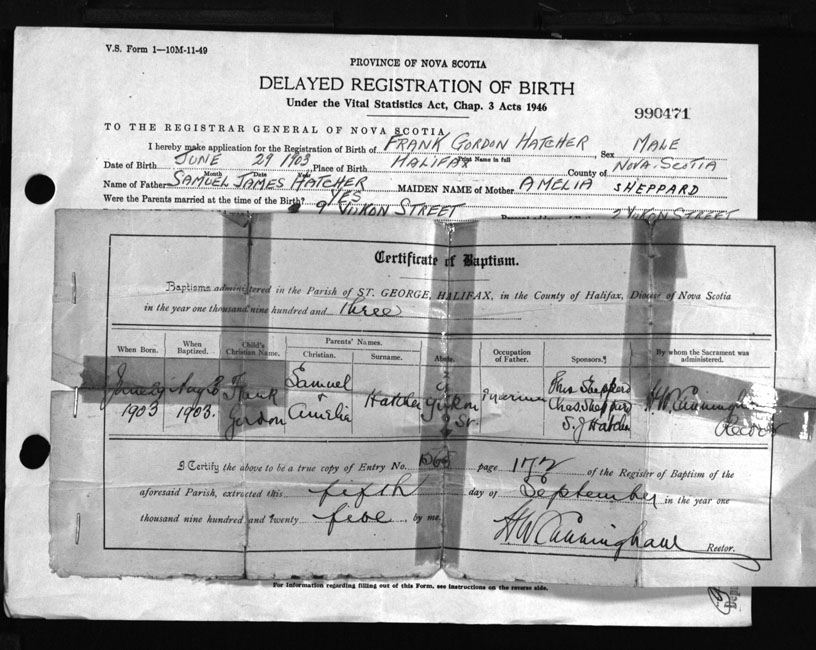 V.S. Form 1—10M-11-49
PROVINCE OF NOVA SCOTIA
DELAYED REGISTRATION OF BIRTH
Under the Vital Statistics Act, Chap. 3 Acts 1946
990471
TO THE REGISTRAR GENERAL OF NOVA SCOTIA
I hereby make application for the Registration of Birth of FRANK GORDON HATCHER Sex MALE
Print Name in full
Date of Birth JUNE 29 1903 Place of Birth HALIFAX County of NOVA-SCOTIA
Month Date
Name of Father SAMUEL JAMES HATCHER MAIDEN NAME of Mother AMELIA SHEPPARD
Were the Parents married at the time of the Birth? YES
9 YUKON STREET YUKON STREET
Certificate of Baptism.
Baptisms administered in the Parish of ST. GEORGE, HALIFAX, in the County of Halifax, Diocese of Nova Scotia
in the year one thousand nine hundred and three
When Born. When Baptized. Child's Christian Name. Parents' Names. Christian. Surname. Abode. Occupation of Father. Sponsors. By whom the Sacrament was administered.
1903 Aug 1903. Frank Gordon Samuel & Amelia Hatcher 9 Yukon St. Chas. Sheppard S. J Hatcher H. W. Cunningham Rector
I Certify the above to be a true copy of Entry No. page 172 of the Register of Baptism of the
aforesaid Parish, extracted this fifth day of September in the year one
thousand nine hundred and twenty five by me,
H W Cunningham Rector.
For Information regarding filling out of this Form, see instructions on the reverse side.